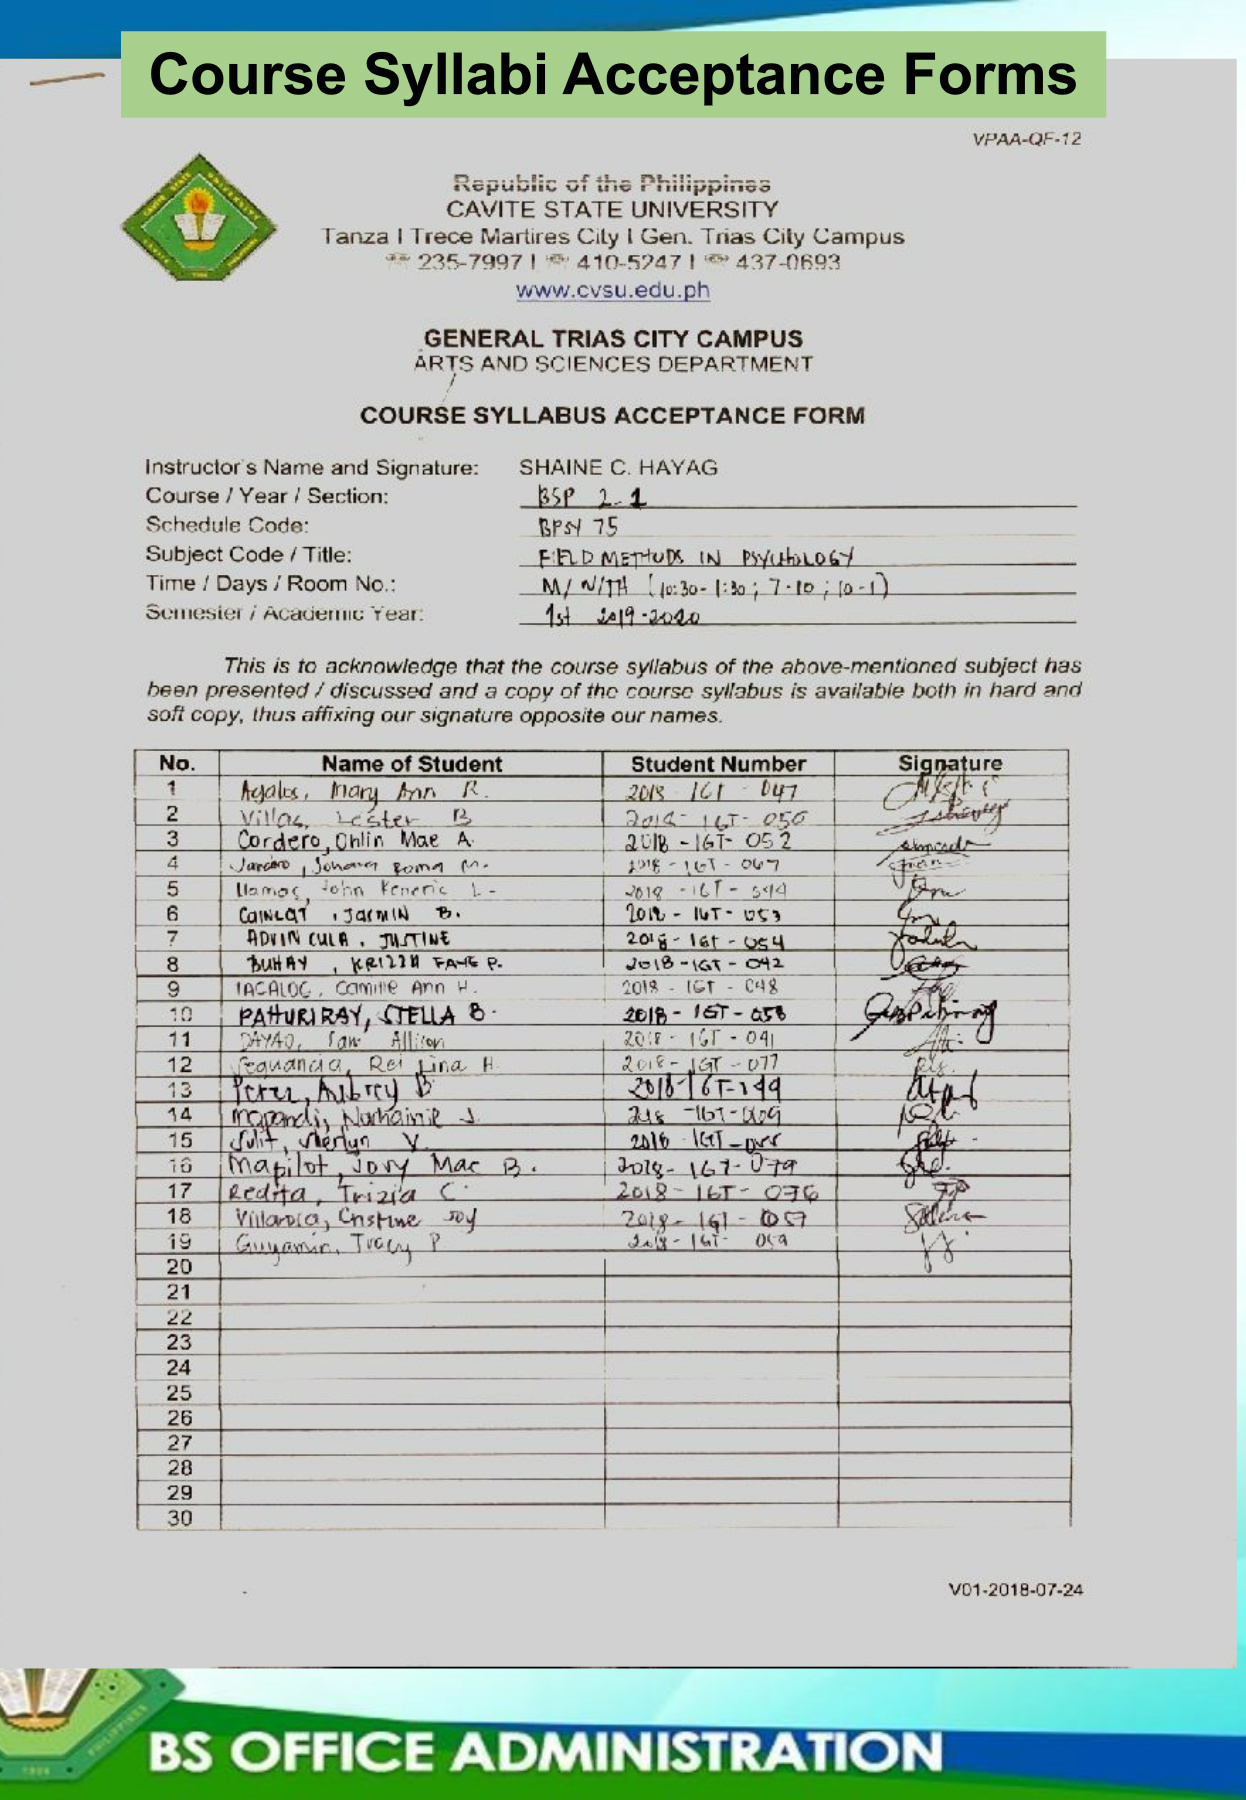 Course Syllabi Acceptance Forms
VPAA-QF-12
Republic of the Philippines
CAVITE STATE UNIVERSITY
Tanza I Trece Martires City I Gen. Trias City Campus
☏ 235-7997 I ☏ 410-5247 I ☏ 437-0693
www.cvsu.edu.ph
GENERAL TRIAS CITY CAMPUS
ARTS AND SCIENCES DEPARTMENT
COURSE SYLLABUS ACCEPTANCE FORM
Instructor's Name and Signature: SHAINE C. HAYAG
Course / Year / Section: BSP 2-1
Schedule Code: BPSY 75
Subject Code / Title: FIELD METHODS IN PSYCHOLOGY
Time / Days / Room No.: M/ W/TH (10:30-1:30; 7-10; 10-1)
Semester / Academic Year: 1st 2019-2020
This is to acknowledge that the course syllabus of the above-mentioned subject has
been presented / discussed and a copy of the course syllabus is available both in hard and
soft copy, thus affixing our signature opposite our names.
No. Name of Student Student Number Signature
1 Mary Ann R. 2018 - IGT - 047
2 Villas, Lester B 2018- IGT- 050
3 Cordero, Ohlin Mae A. 2018 -IGT- 052
4 Roma M. 2018 - IGT - 067
5 Llamos, John L- 2018 -IGT -
6 JASMIN B. 2018 - IGT- 053
7 ADVINCULA, JUSTINE 2018- IGT - 054
8 BUHAY, KRIZZA FAYE P. 2018-IGT - 042
9 Camille Ann H. 2018 - IGT - 048
10 STELLA B. 2018- IGT - 058
11 DAYAO, Sam Allison 2018 - IGT - 041
12 Rei Lina H. 2018 - IGT - 077
13 Perez, Aubrey B 2018-IGT-199
14 Norhainie J. -IGT-009
15 Sulit, Sherlyn V. 2018 IGT
16 Mapilot, Jovy Mae B. 2018- IGT- 079
17 Redita, Trizia C. 2018- IGT- 076
18 Cristine Joy 2018- IGT - 057
19 Guyamin, Tracy P 2018- IGT- 059
20
21
22
23
24
25
26
27
28
29
30
V01-2018-07-24
BS OFFICE ADMINISTRATION